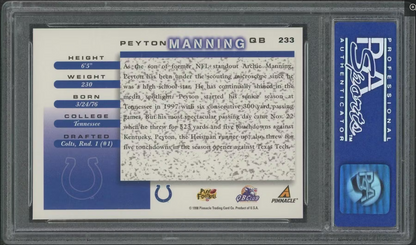 PEYTON MANNING QB 233
HEIGHT
6'5"
WEIGHT
230
BORN
3/24/76
COLLEGE
Tennessee
DRAFTED
Colts, Rnd. 1 (#1)
As the son of former NFL standout Archie Manning,
Peyton has been under the scouting microscope since he
was a high school star. He has continually shined in the
spotlight. Peyton started his senior season at
Tennessee in 1997 with six consecutive 300-yard passing
games. But his most spectacular passing day came Nov. 22
when he threw for 523 yards and five touchdowns against
Kentucky. Peyton, the Heisman runner-up, also threw for
five touchdowns in the season opener against Texas Tech.
© 1998 Pinnacle Trading Card Co. Product of U.S.A.
PINNACLE
PSA
Sports
PROFESSIONAL
SPORTS
AUTHENTICATOR
PSA